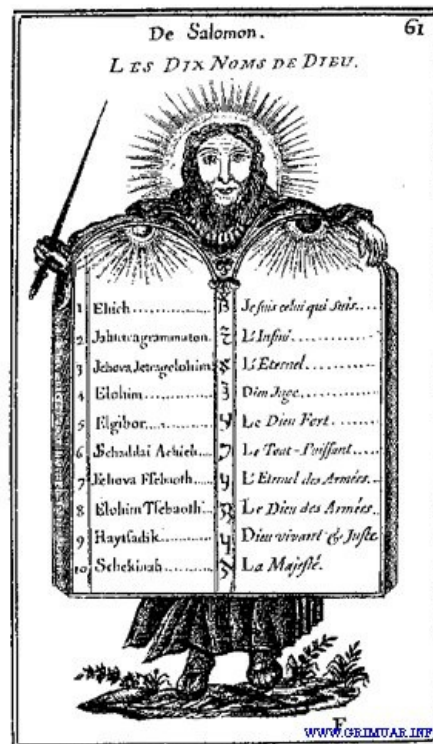 De Salomon. 61
LES DIX NOMS DE DIEU.
1 Ehieh........... Je suis celui qui suis....
2 L'Infini...........
3 L'Eternel...........
4 Elohim........... Dieu Juge...........
5 Elgibor........... Le Dieu Fort...........
6 Schaddai Le Tout-Puissant....
7 Jehova L'Eternel des Armées.
8 Elohim Tsebaoth... Le Dieu des Armées....
9 Haytsadik........ Dieu vivant & Juste
10 Schekinah......... La Majesté.
F
WWW.GRIMUAR.INF